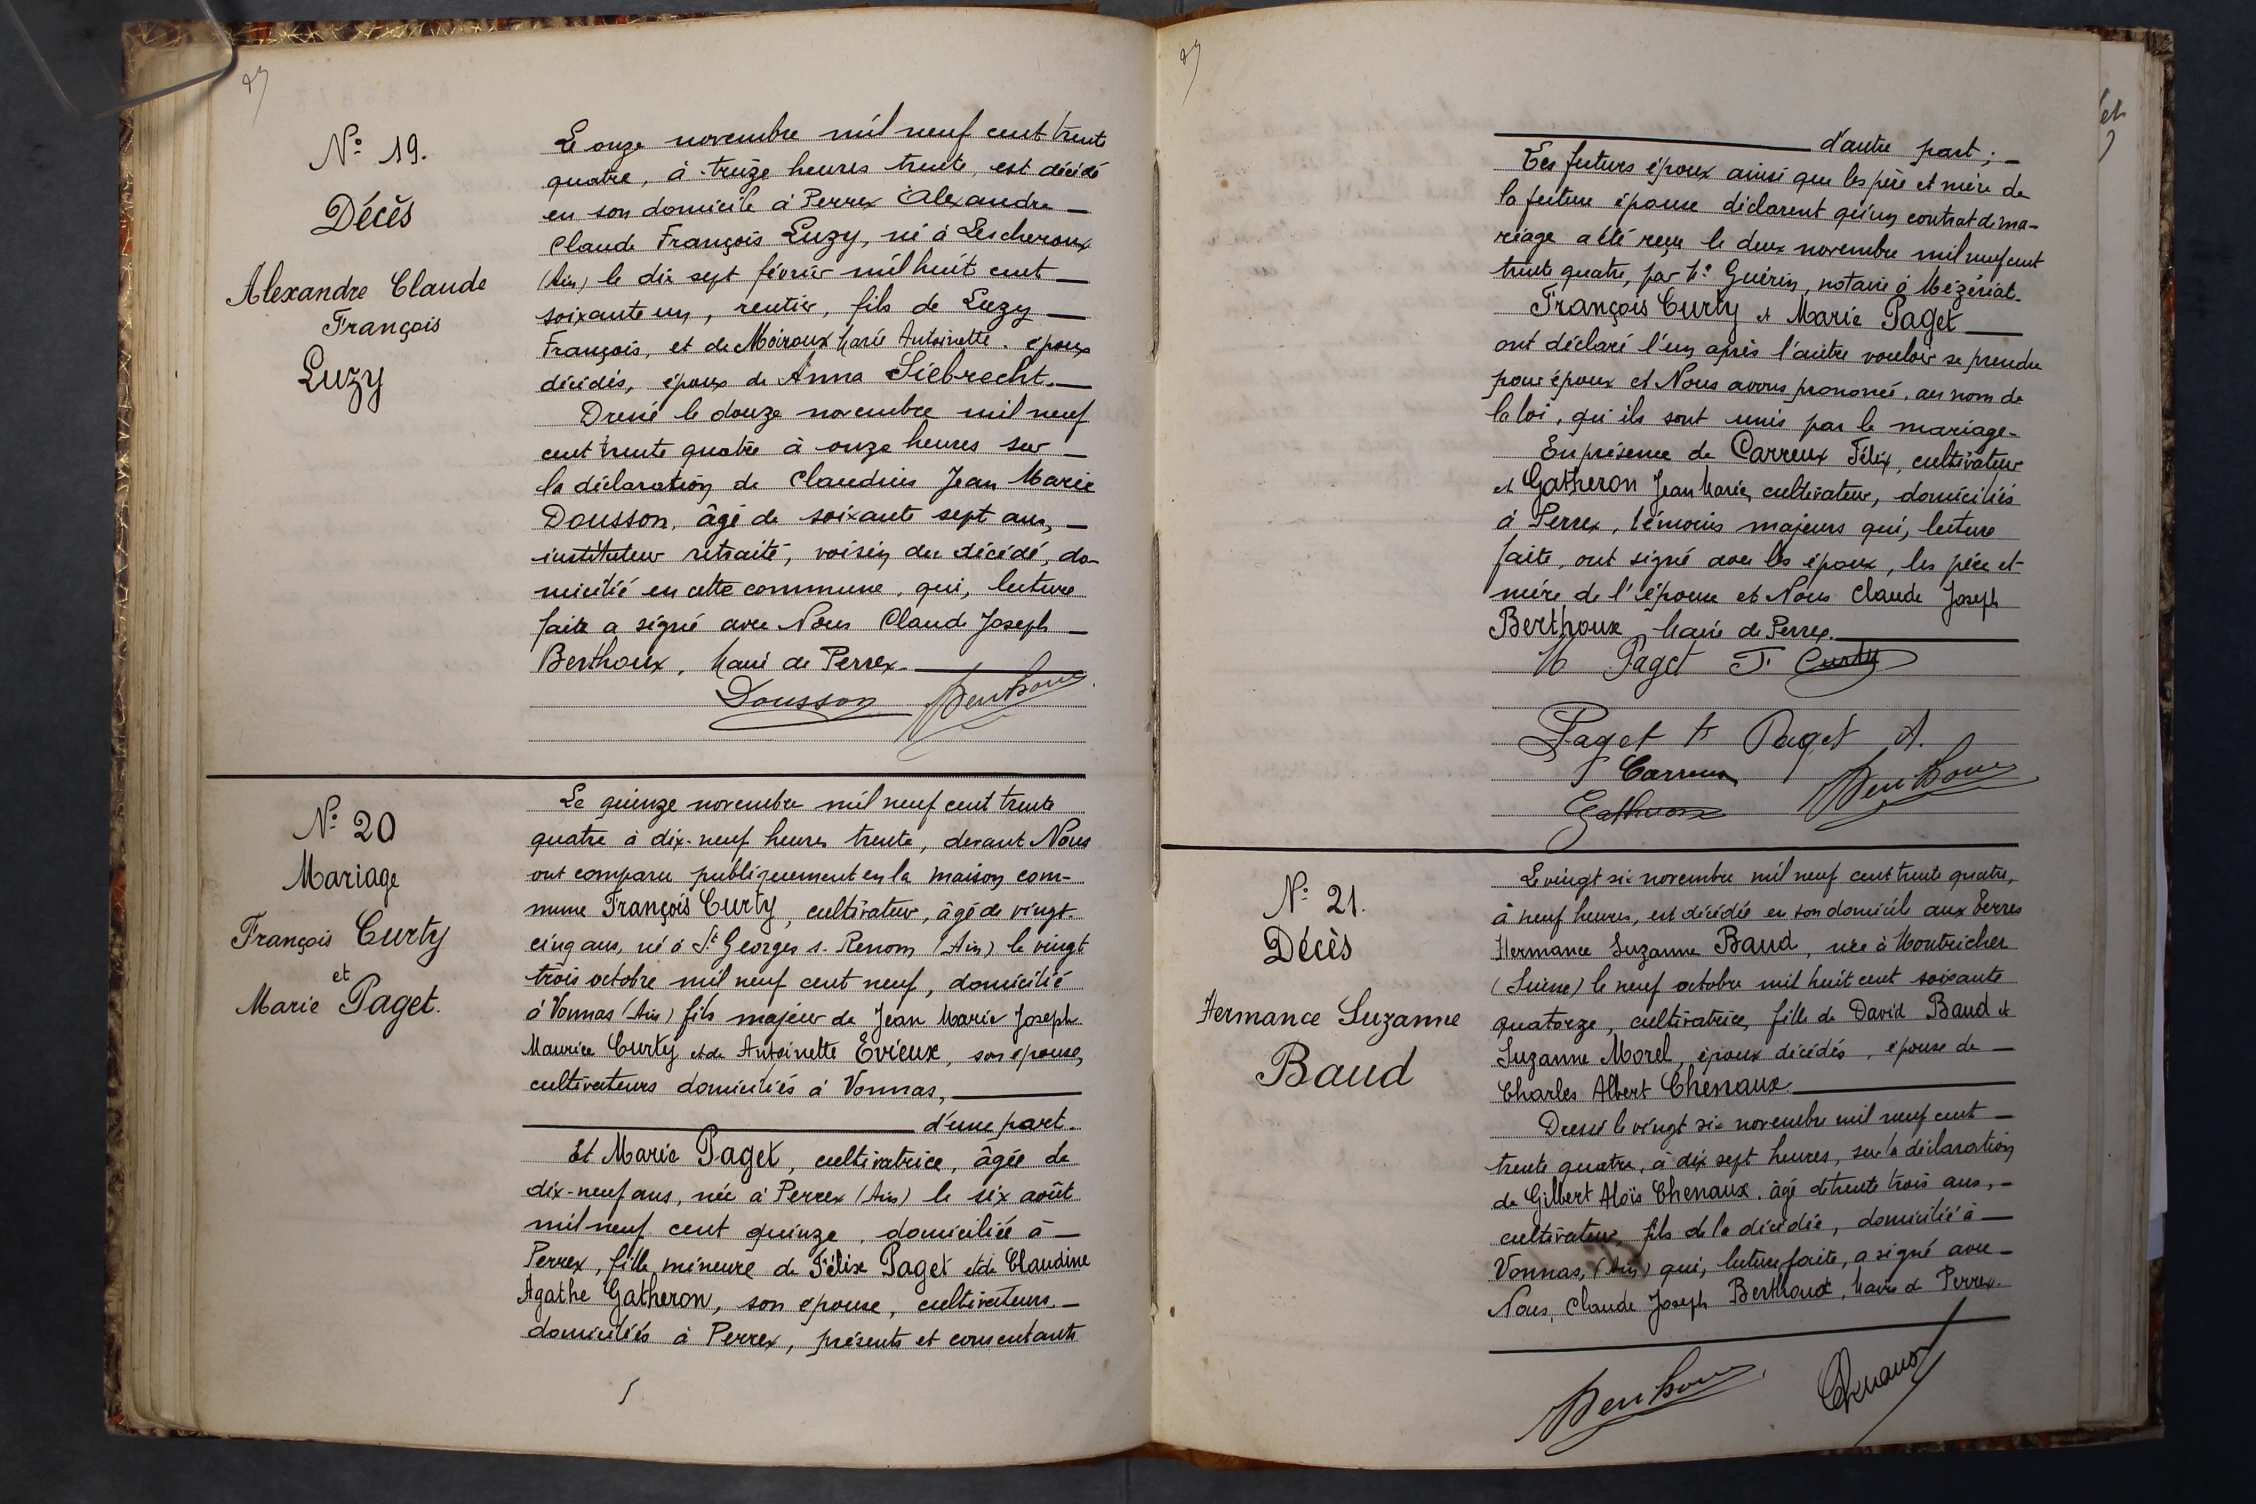 Nº 19.
Décès
Alexandre Claude
François
Luzy
Le onze novembre mil neuf cent trente
quatre, à treize heures trente, est décédé
en son domicile à Perrex Alexandre
Claude François Luzy, né à Lescheroux
(Ain) le dix sept février mil huit cent
soixante un, rentier, fils de Luzy
François, et de Moiroux Marie Antoinette, époux
décédés, époux de Anna Siebrecht.
Dressé le douze novembre mil neuf
cent trente quatre à onze heures sur
la déclaration de Claudius Jean Marie
Dousson, âgé de soixante sept ans,
instituteur retraité, voisin du décédé, do-
micilié en cette commune, qui, lecture
faite a signé avec Nous Claude Joseph
Berthoux, Maire de Perrex.
Dousson Berthoux
Nº 20
Mariage
François Curty
et
Marie Paget.
Le quinze novembre mil neuf cent trente
quatre à dix-neuf heures trente, devant Nous
ont comparu publiquement en la maison com-
mune François Curty, cultivateur, âgé de vingt-
cinq ans, né à St Georges s. Renom (Ain) le vingt
trois octobre mil neuf cent neuf, domicilié
à Vonnas (Ain) fils majeur de Jean Marie Joseph
Maurice Curty et de Antoinette Evieux, son épouse,
cultivateurs domiciliés à Vonnas,
d'une part.
Et Marie Paget, cultivatrice, âgée de
dix-neuf ans, née à Perrex (Ain) le six août
mil neuf cent quinze, domiciliée à
Perrex, fille mineure de Félix Paget et de Claudine
Agathe Gatheron, son épouse, cultivateurs
domiciliés à Perrex, présents et consentants
d'autre part;
Les futurs époux ainsi que les père et mère de
la future épouse déclarent qu'un contrat de ma-
riage a été reçu le deux novembre mil neuf cent
trente quatre, par Me Guérin, notaire à Mézériat.
François Curty et Marie Paget
ont déclaré l'un après l'autre vouloir se prendre
pour époux et Nous avons prononcé, au nom de
la loi, qu'ils sont unis par le mariage.
En présence de Carreux Félix, cultivateur
et Gatheron Jean Marie, cultivateur, domiciliés
à Perrex, témoins majeurs qui, lecture
faite, ont signé avec les époux, les père et
mère de l'épouse et Nous Claude Joseph
Berthoux, Maire de Perrex.
M Paget F. Curty
Paget F Paget A.
Carreux Berthoux
Gatheron
Nº 21.
Décès
Hermance Suzanne
Baud
Le vingt six novembre mil neuf cent trente quatre,
à neuf heures, est décédée en son domicile aux Serres
Hermance Suzanne Baud, née à Montricher
(Suisse) le neuf octobre mil huit cent soixante
quatorze, cultivatrice, fille de David Baud et
Suzanne Morel, époux décédés, épouse de
Charles Albert Chenaux.
Dressé le vingt six novembre mil neuf cent
trente quatre, à dix sept heures, sur la déclaration
de Gilbert Aloïs Chenaux, âgé de trente trois ans,
cultivateur, fils de la décédée, domicilié à
Vonnas, (Ain) qui, lecture faite, a signé avec
Nous, Claude Joseph Berthoux, Maire de Perrex.
Berthoux Chenaux